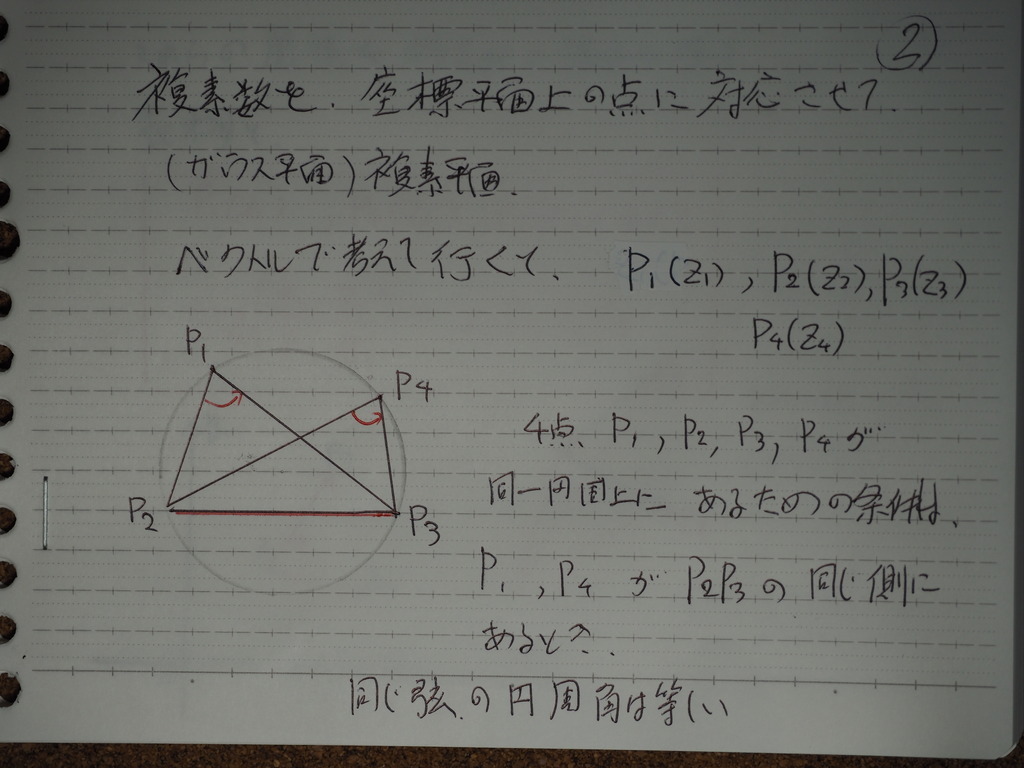 (2)
複素数を、座標平面上の点に対応させて、
(ガウス平面)複素平面、
ベクトルで考えて行くて、
P1(Z1), P2(Z2), P3(Z3)
P4(Z4)
P1
P4
P2
P3
4点 P1, P2, P3, P4が
同一円周上に あるための条件は、
P1, P4 が P2P3の 同じ側に
あるとき、
同じ弦の円周角は等しい